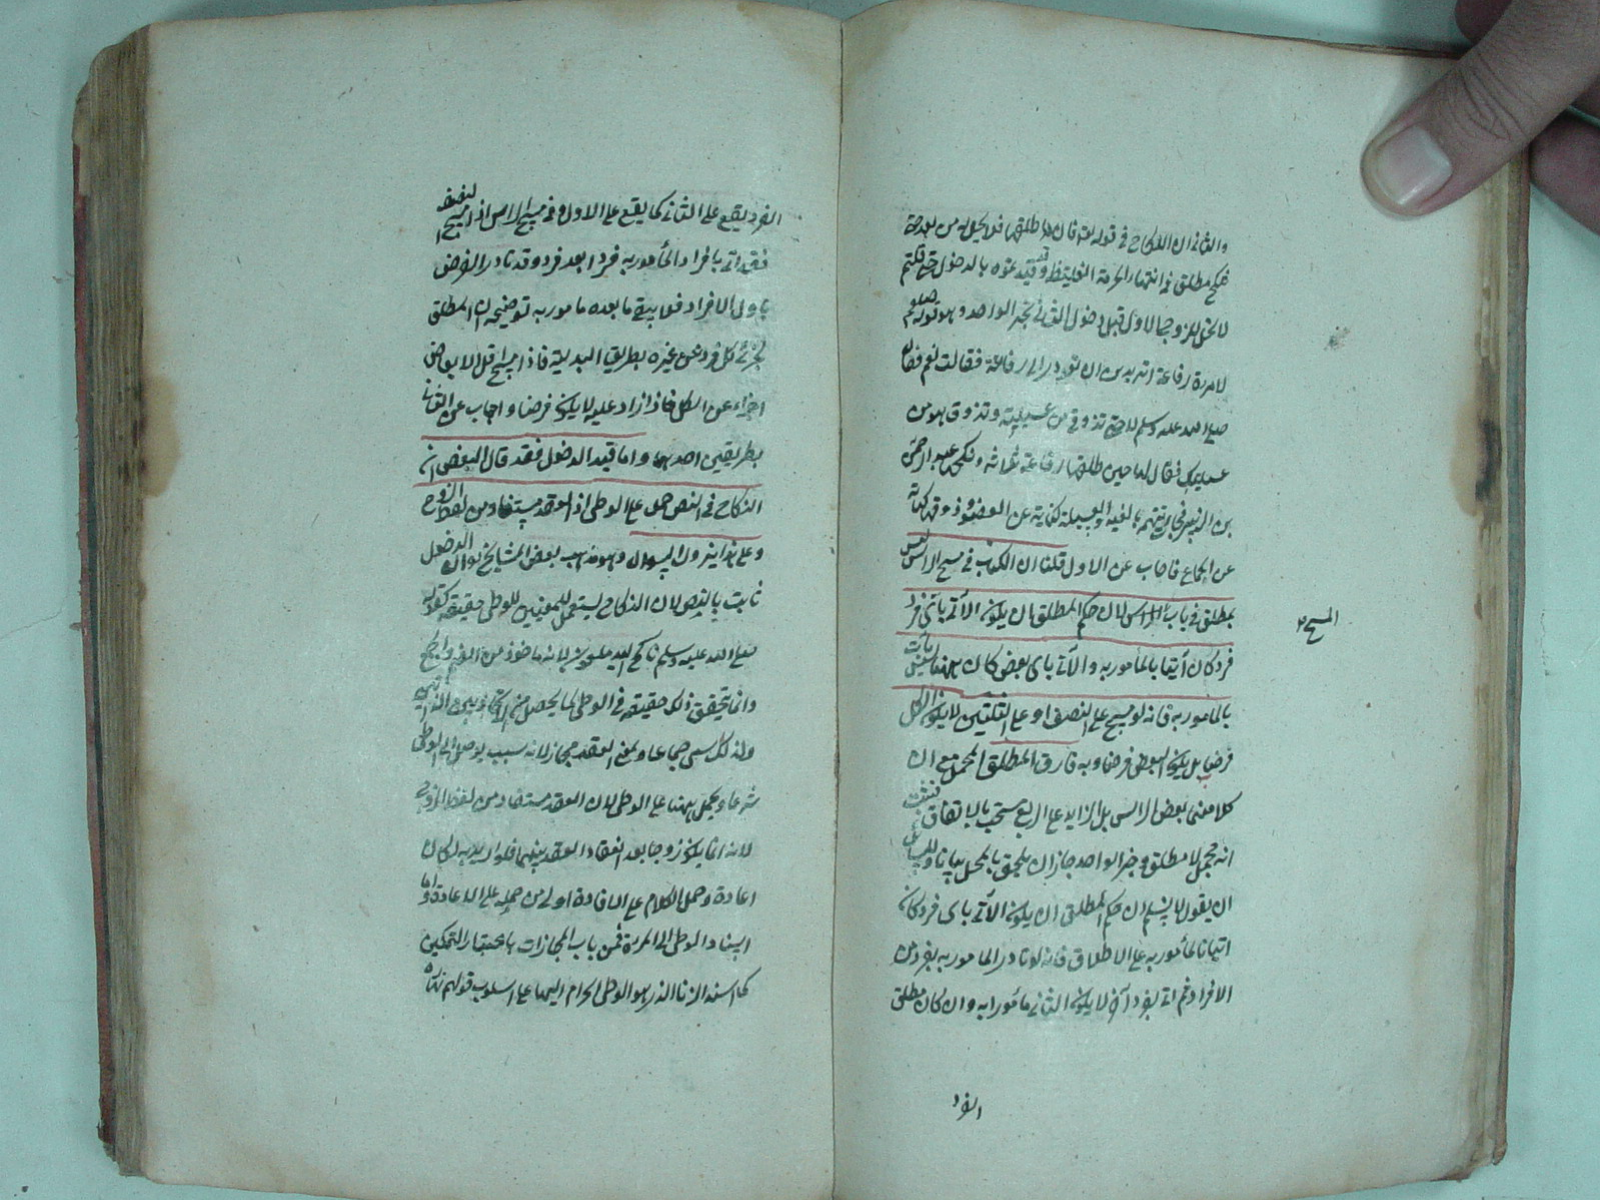 والثاني ان النكاح في قوله تعا فان طلقها فلا تحل له من بعد حتى
تنكح مطلق في انتهاء الحرمة الغليظة وقد قيدتموه بالدخول حتى قلتم
لا تحل للزوج الاول قبل دخول الثاني بخبر الواحد وهو قوله صلعم
لامرة رفاعة اتريدين ان تعودي الى رفاعة فقالت نعم فقال
صلى الله عليه وسلم لا حتى تذوقي من عسيلته ويذوق هو من
عسيلتك فقال لها حين طلقها رفاعة ثلاثا ونكحت عبد الرحمن
بن الزبير فاتهمته بالعنة والعسيلة كناية عن العضو وذوقه كناية
عن الجماع فاجاب عن الاول قلنا ان الكتاب في مسح الراس ليس
بمطلق في باب الراس لان حكم المطلق ان يكون الآتي باي فرد
المسح
فرد كان آتيا بالمأمور به والآتي باي بعض كان ههنا ليس بآت
بالمأمور به فانه لو مسح على النصف او على الثلثين لا يكون الكل
فرضا بل يكون البعض فرضا وبه فارق المطلق المجمل مع ان
كلا معنى بعض الراس بل الزايد على الربع مستحب بالاتفاق فثبت
انه مجمل لا مطلق وخبر الواحد جاز ان يلحق بالمجمل بيانا وللسائل
ان يقول لا نسلم ان حكم المطلق ان يكون الآتي باي فرد كان
اتيا بالمأمور به على الاطلاق فانه لو تادى المأمور به بفرد من
الافراد ثم اتى بفرد آخر لا يكون الثاني مأمورا به وان كان مطلق
الفرد
الفرد يقع على الثاني كما يقع على الاول وفي مسح الراس اذا مسح النصف
فقد اتى بافراد المأمور به فردا بعد فرد وقد تادى الفرض
باول الافراد فلا يبقى ما بعده مامورا به توضيحه ان المطلق
يجزئ كل فرد عن غيره بطريق البدلية فاذا مسح اقل الابعاض
اجزاء عن الكل فاذا زاد عليه لا يكون فرضا واجاب عن الثاني
بطريقين احدهما واما قيد الدخول فقد قال البعض ان
النكاح في النص حمل على الوطئ اذ العقد مستفاد من لفظ الزوج
وعلى هذا يزول السوال وهو مذهب بعض المشايخ لان الدخول
ثابت بالنص لان النكاح يستعمل للمعنيين للوطئ حقيقة كقوله
صلى الله عليه وسلم ناكح اليد ملعون لانه ماخوذ من الضم والجمع
وانما يتحقق ذلك حقيقة في الوطئ لما يحصل من الاتحاد بين الذاتين
ولذلك سمي جماعا وبمعنى العقد مجاز لانه سبب يوصل الى الوطئ
شرعا ويحمل ههنا على الوطئ لان العقد مستفاد من لفظ الزوج
لانه انما يكون زوجا بعد انعقاد العقد بينهما فلو اريد به لكان
اعادة وحمل الكلام على الافادة اولى من حمله على الاعادة واما
اسناد الوطئ الى المرءة فمن باب المجازات باعتبار التمكين
كما اسند الزنا الذي هو الوطئ الحرام اليها على اسلوب قولهم نهاره